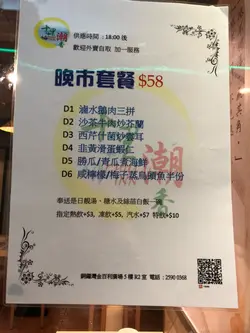 供應時間：18:00 後
歡迎外賣自取 加一服務
晚市套餐 $58
D1 滷水鵝肉三拼
D2 沙茶牛肉炒芥蘭
D3 西芹什菌炒雲耳
D4 韭黃滑蛋蝦仁
D5 勝瓜/青瓜煮海鮮
D6 咸檸檬/梅子蒸烏頭魚半份
潮
奉送是日靚湯、糖水及絲苗白飯一碗
指定熱飲+$3, 凍飲+$5, 汽水+$7 特飲+$10
銅鑼灣金百利廣場 5 樓 R2 室 電話：2590 0568